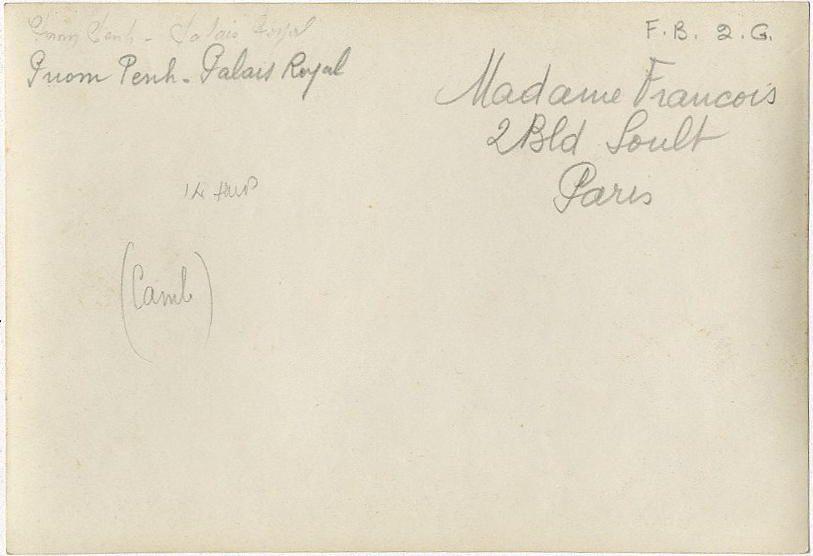 Pnom Penh - Palais Royal
Pnom Penh - Palais Royal
F. B. 2. G.
Madame Francois
2 Bld Soult
Paris
14
(Camb)